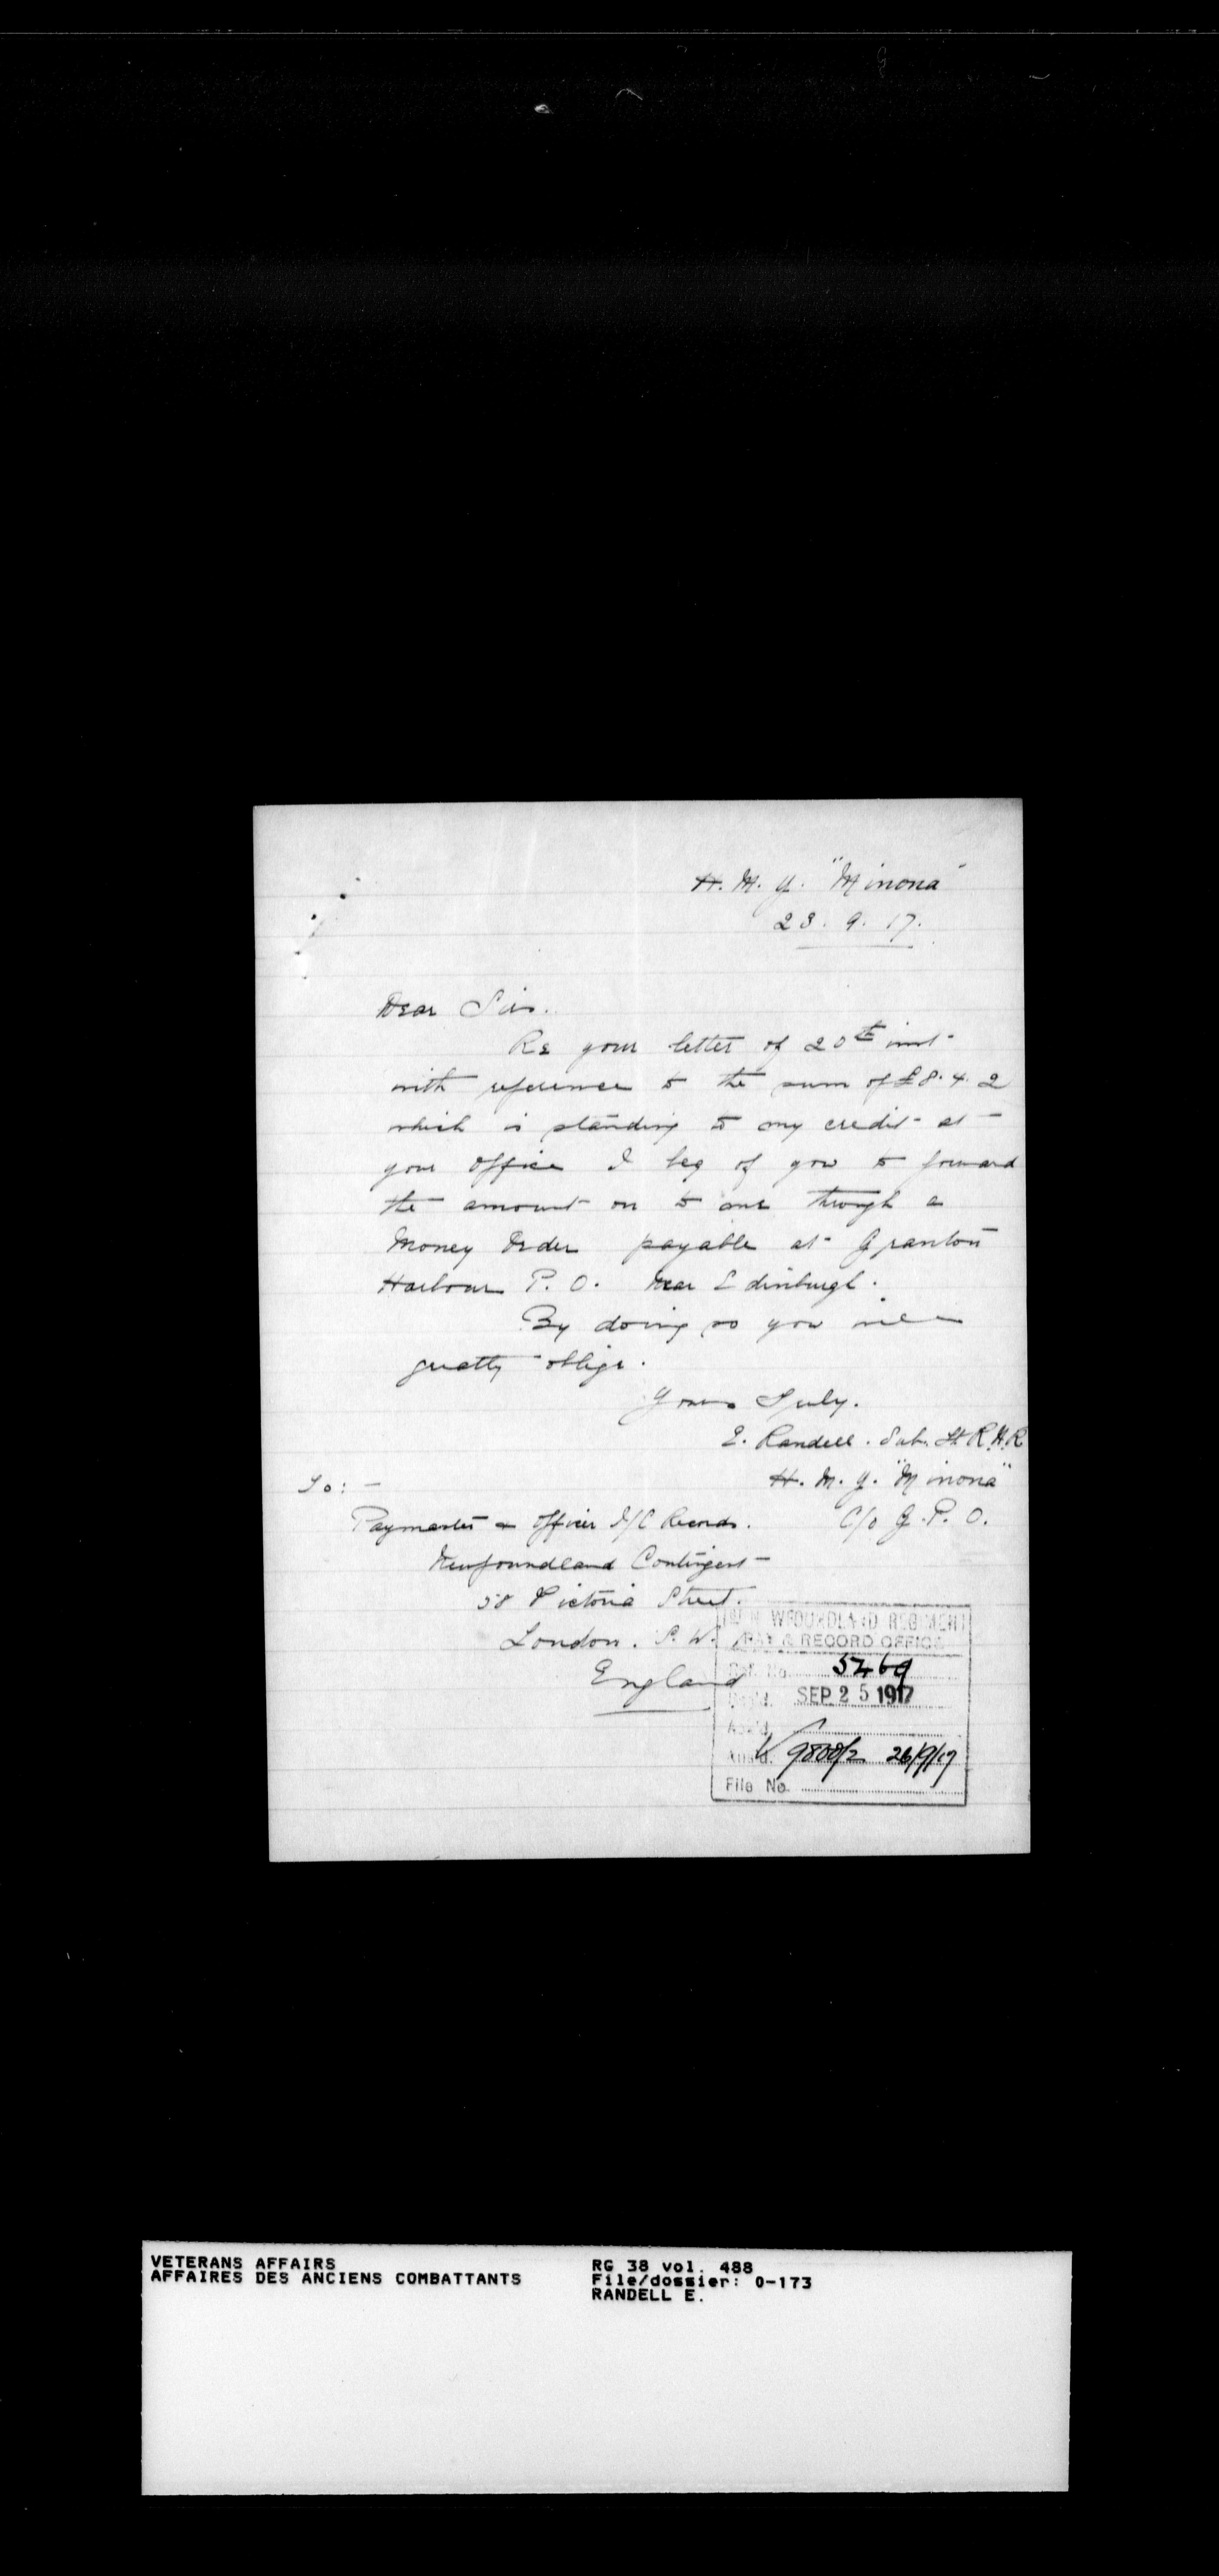 H. M. Y. "Minona"
23. 9. 17.
Dear Sir.
Re your letter of 20th inst
with reference to the sum of £8. 4. 2
which is standing to my credit at
your office I beg of you to forward
the amount on to me through a
Money Order payable at Granton
Harbour P. O. near Edinburgh.
By doing so you will
greatly oblige.
Yours Truly.
E. Randell. Sub. Lt R.N.R
H. M. Y. "Minona"
C/o G. P. O.
To: -
Paymaster & Officer I/C Records.
Newfoundland Contingent
58 Victoria Street.
London. S. W.
England
NEWFOUNDLAND REGIMENT
PAY & RECORD OFFICE
Ref. No. 5469
Rec'd. SEP 25 1917
Ack'd.
Ans'd. 9800/2 26/9/17
File No.
VETERANS AFFAIRS
AFFAIRES DES ANCIENS COMBATTANTS
RG 38 vol. 488
File/dossier: 0-173
RANDELL E.